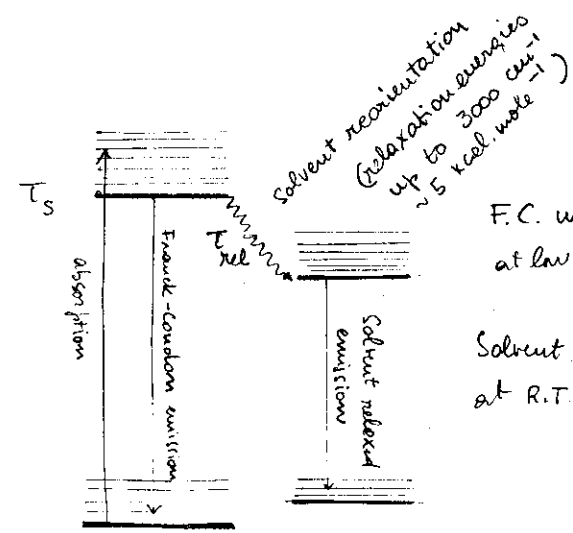 Solvent reorientation
(relaxation energies
up to 3000 cm⁻¹
~5 kcal.mole⁻¹)
τs
τrel
absorption
Franck-Condon emission
Solvent relaxed
emission
F.C.
at low
Solvent
at R.T.